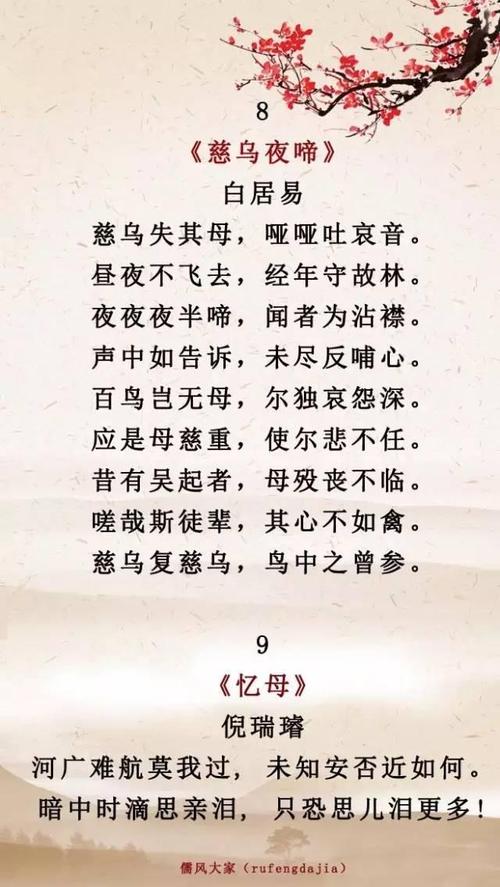 8
《慈乌夜啼》
白居易
慈乌失其母，哑哑吐哀音。
昼夜不飞去，经年守故林。
夜夜夜半啼，闻者为沾襟。
声中如告诉，未尽反哺心。
百鸟岂无母，尔独哀怨深。
应是母慈重，使尔悲不任。
昔有吴起者，母殁丧不临。
嗟哉斯徒辈，其心不如禽。
慈乌复慈乌，鸟中之曾参。
9
《忆母》
倪瑞璿
河广难航莫我过，未知安否近如何。
暗中时滴思亲泪，只恐思儿泪更多！
儒风大家（rufengdajia）